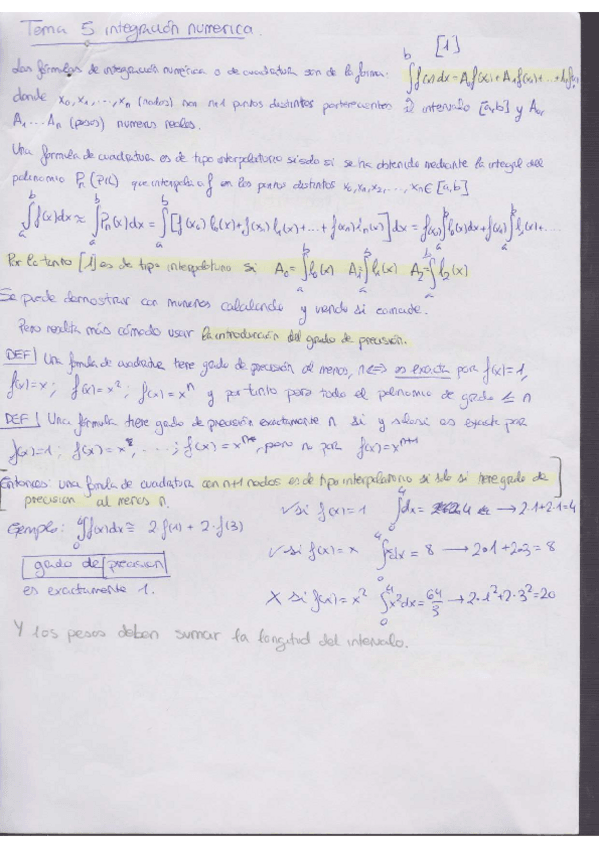 Tema 5 integración numerica.
[1]
Las fórmulas de integración numérica o de cuadratura son de la forma: ∫_a^b f(x)dx = A₀f(x₀)+A₁f(x₁)+...+
donde x₀, x₁, ..., xₙ (nodos) son n+1 puntos distintos pertenecientes al intervalo [a,b] y A₀,
A₁ ... Aₙ (pesos) numeros reales.
Una formula de cuadratura es de tipo interpolatorio si solo si se ha obtenido mediante la integral del
polinomio Pₙ (PIL) que interpola a f en los puntos distintos x₀,x₁,x₂, ..., xₙ∈[a,b]
∫_a^b f(x)dx ≈ ∫_a^b Pₙ(x)dx = ∫_a^b [f(x₀) l₀(x)+f(x₁) l₁(x)+...+f(xₙ)lₙ(x)]dx = f(x₀)∫_a^b l₀(x)dx+f(x₁)∫_a^b l₁(x)+...
Por lo tanto [1] es de tipo interpolatorio si A₀=∫_a^b l₀(x) A₁=∫_a^b l₁(x) A₂=∫_a^b l₂(x)
Se puede demostrar con numeros calculando y viendo si coincide.
Pero resulta más cómodo usar la introducción del grado de precisión.
DEF| Una formula de cuadratura tiene grado de precisión al menos, n⟺ es exacta para f(x)=1,
f(x)=x; f(x)=x²; f(x)=xⁿ y por tanto para todo el polinomio de grado ≤ n
DEF| Una fórmula tiene grado de precisión exactamente n si y solo si es exacta por
f(x)=1; f(x)=x, ....; f(x)=xⁿ, pero no por f(x)=xⁿ⁺¹
Entonces: una formula de cuadratura con n+1 nodos es de tipo interpolatorio si solo si tiene grado de
precision al menos n.
✓ si f(x)=1 ∫_0^4 dx = 4 → 2·1+2·1=4
Ejemplo: ∫_0^4 f(x)dx ≅ 2f(1) + 2·f(3)
✓ si f(x)=x ∫_0^4 xdx = 8 → 2·1+2·3=8
grado de precision
es exactamente 1.
X si f(x)=x² ∫_0^4 x²dx = 64/3 → 2·1²+2·3²=20
Y los pesos deben sumar la longitud del intervalo.